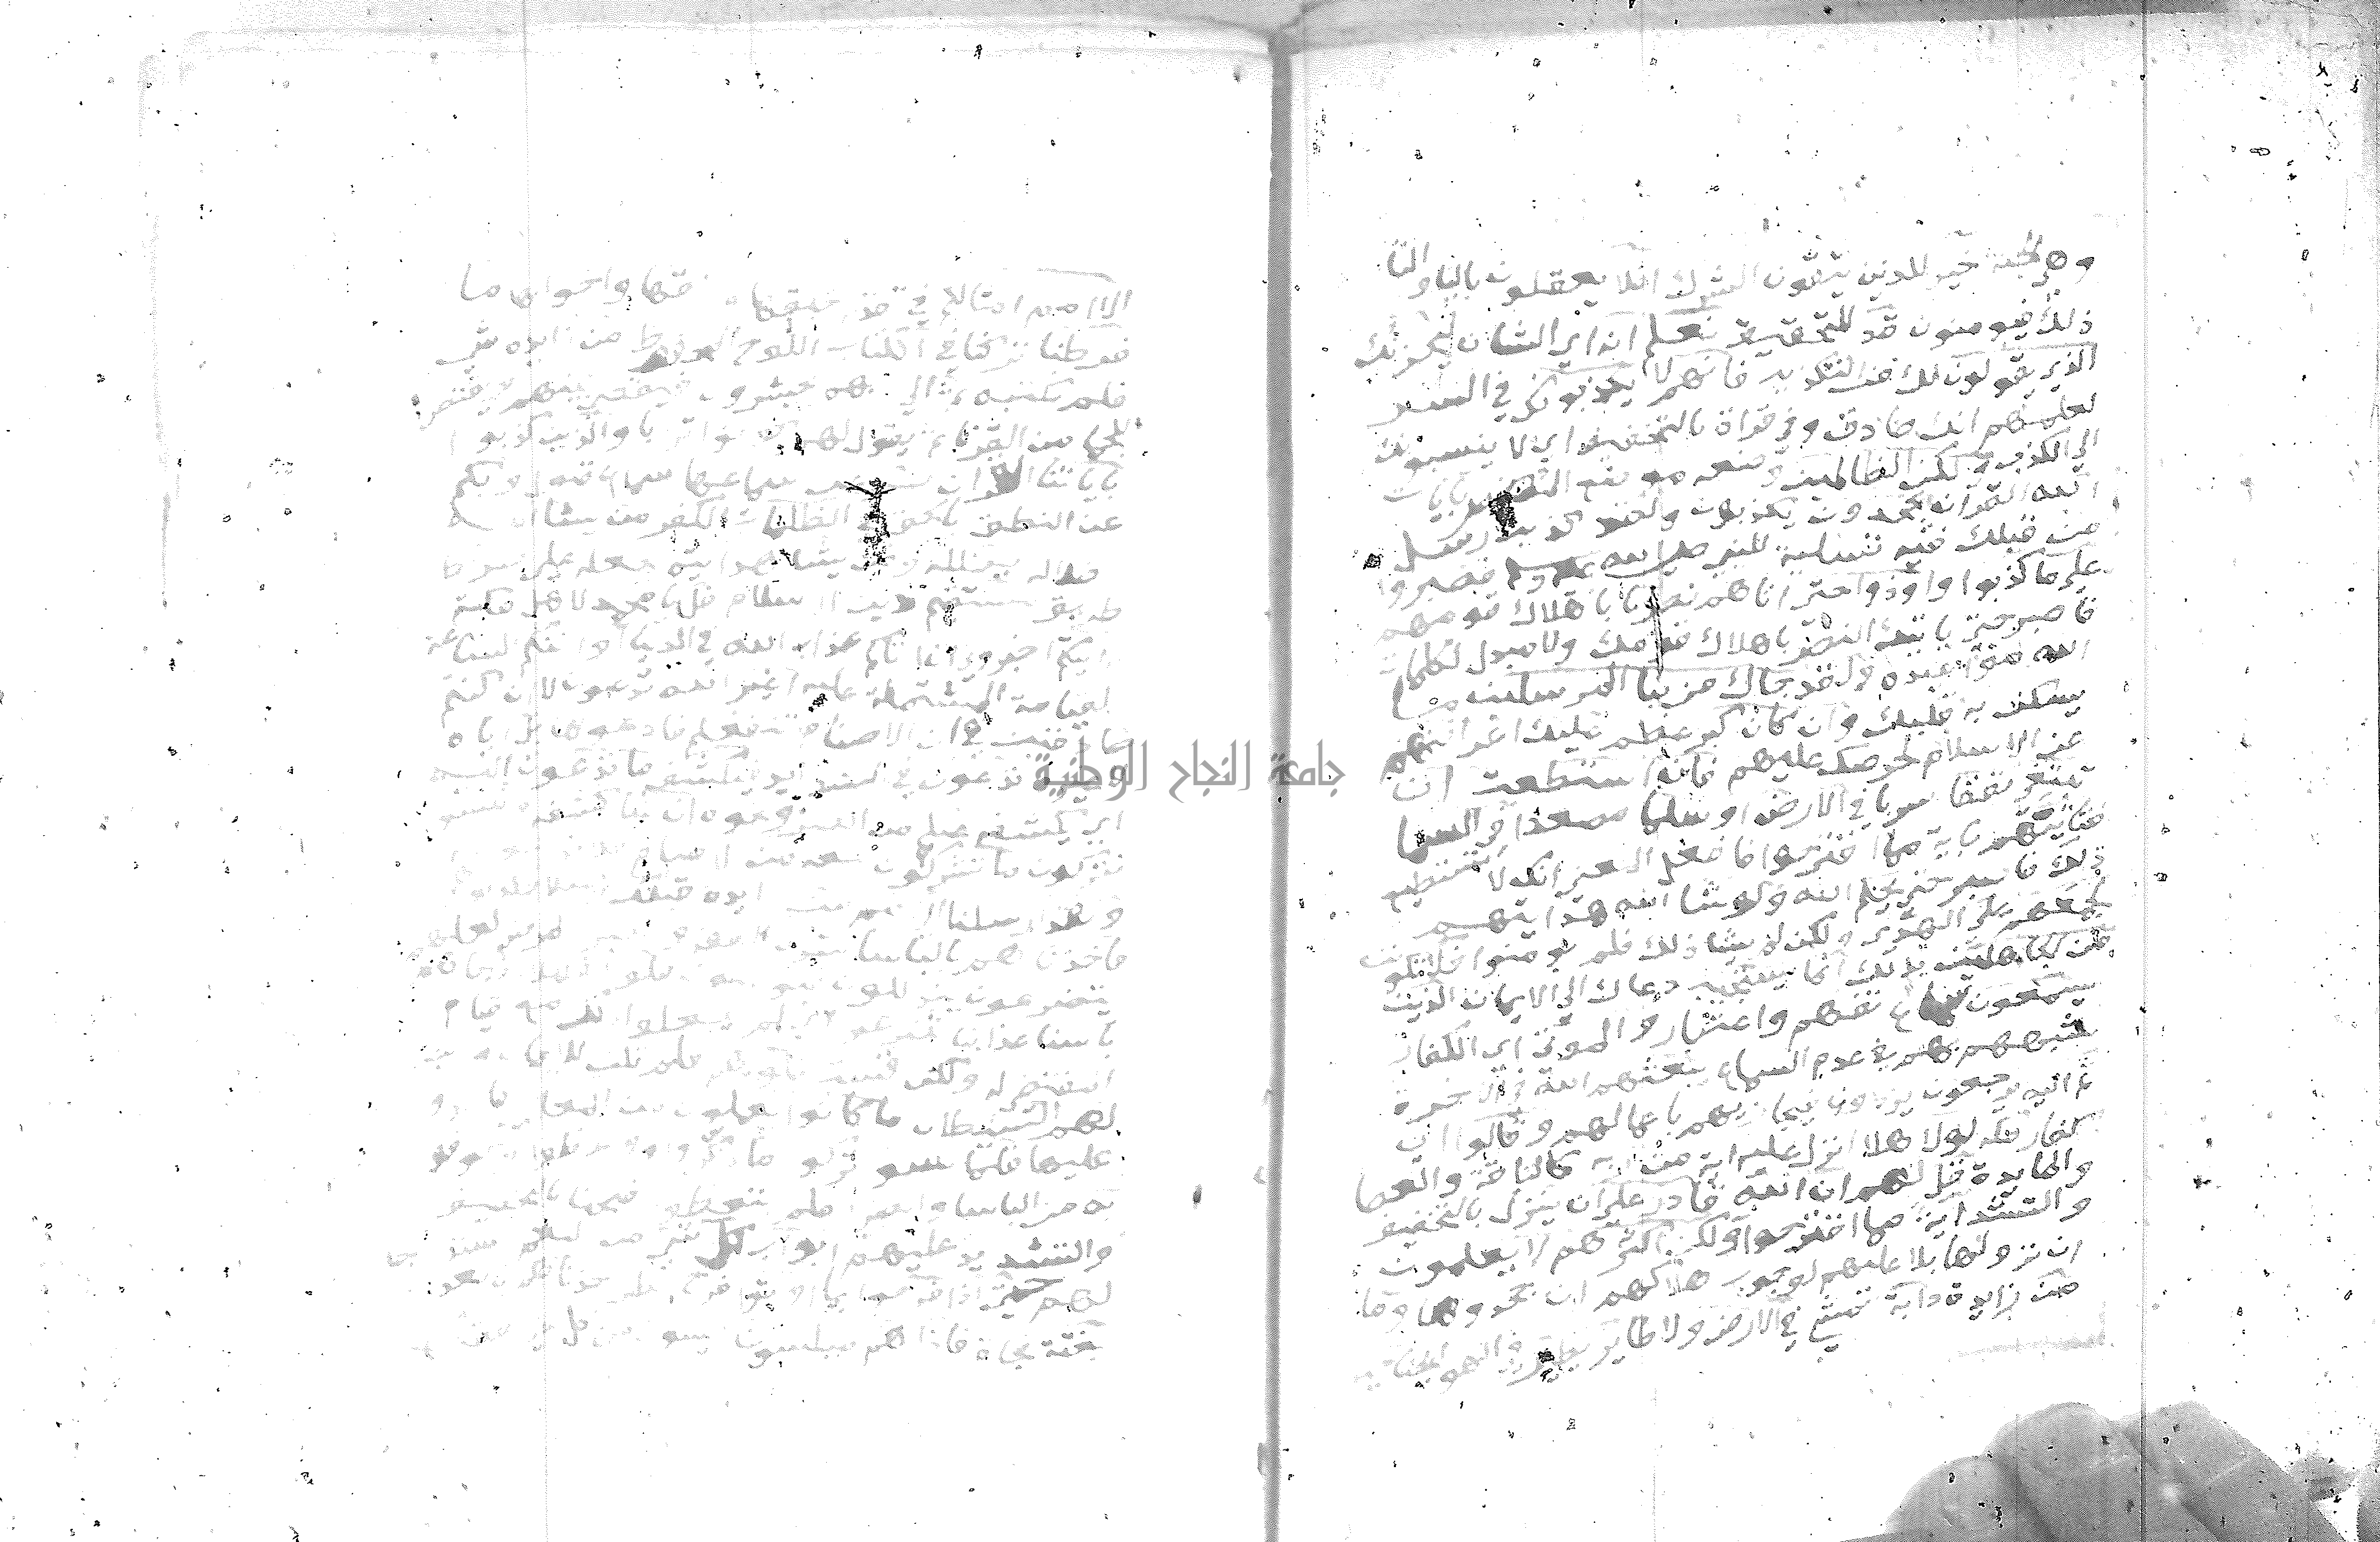 وهي الجنة خير للذين يتقون الشرك افلا يعقلون باليا والتا
ذلك فيومنون قد للتحقيق نعلم انه اي الشان ليحزنك
الذي يقولون لك من التكذيب فانهم لا يكذبونك في السر
لعلمهم انك صادق وفي قراة بالتخفيف اي لا ينسبونك
الي الكذب ولكن الظالمين وضعه موضع المضمر بايات
الله القران يجحدون يكذبون ولقد كذبت رسل
من قبلك فيه تسلية للنبي صلي الله عليه وسلم فصبروا
علي ما كذبوا واوذوا حتي اتاهم نصرنا باهلاك قومهم
فاصبر حتي ياتيك النصر باهلاك قومك ولا مبدل لكلمات
الله مواعيده ولقد جاك من نبا المرسلين ما
يسكن به قلبك وان كان كبر عظم عليك اعراضهم
عن الاسلام لحرصك عليهم فان استطعت ان
تبتغي نفقا سربا في الارض او سلما مصعدا في السما
فتاتيهم باية مما اقترحوا فافعل المعني انك لا تستطيع
ذلك فاصبر حتي يحكم الله ولو شا الله هدايتهم
لجمعهم علي الهدي ولكن لم يشا ذلك فلم يومنوا فلا تكونن
من الجاهلين بذلك انما يستجيب دعاك الي الايمان الذين
يسمعون سماع تفهم واعتبار والموتي اي الكفار
شبههم بهم في عدم السماع يبعثهم الله في الاخرة
ثم اليه يرجعون يردون فيجازيهم باعمالهم وقالوا اي
كفار مكة لولا هلا انزل عليه اية من ربه كالناقة والعصا
والمايدة قل لهم ان الله قادر علي ان ينزل بالتخفيف
والتشديد اية مما اقترحوا ولكن اكثرهم لا يعلمون
ان نزولها بلا عليهم لوجوب هلاكهم ان جحدوها وما
من زايدة دابة تمشي في الارض ولا طاير يطير في الهوا بجناحيه
الا امم امثالكم في خلقها واحوالها ما
فرطنا تركنا في الكتاب اللوح المحفوظ من زايدة شي
فلم نكتبه ثم الي ربهم يحشرون فيقضي بينهم
للجما من القرنا ثم يقول لهم كونوا ترابا والذين كذبوا
باياتنا القران صم عن سماعها سماع قبول وبكم
عن النطق بالحق في الظلمات الكفر من يشا الله
اضلاله يضلله ومن يشا هدايته يجعله علي صراط
طريق مستقيم دين الاسلام قل يا محمد لاهل مكة
ارايتكم اخبروني ان اتاكم عذاب الله في الدنيا او اتتكم الساعة
القيامة المشتملة عليه اغير الله تدعون لا ان كنتم
صادقين في ان الاصنام تنفعكم فادعوها بل اياه
تدعون في الشدايد فيكشف ما تدعون اليه
اي يكشفه عنكم من الضر ونحوه ان شا كشفه وتنسون
تتركون ما تشركون معه من الاصنام
ولقد ارسلنا الي امم من زايدة قبلك
فاخذناهم بالباسا شدة الفقر والضرا المرض لعلهم
يتضرعون يتذللون فيومنون فلولا فهلا اذ جاهم
باسنا عذابنا تضرعوا اي لم يفعلوا ذلك مع قيام
المقتضي له ولكن قست قلوبهم فلم تلن للايمان وزين
لهم الشيطان ما كانوا يعملون من المعاصي فاصروا
عليها فلما نسوا تركوا ما ذكروا وعظوا وخوفوا
به من الباسا والضرا فلم يتعظوا فتحنا بالتخفيف
والتشديد عليهم ابواب كل شي من النعم
لهم حتي اذا فرحوا بما اوتوا فرح بطر اخذناهم بالعذاب
بغتة فجاة فاذا هم مبلسون ايسون من كل خير
جامعة النجاح الوطنية